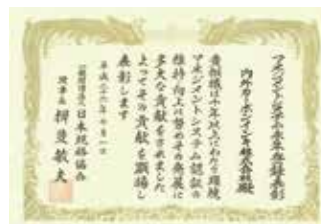 マネジメントシステム永年登録表彰
内外カーボンインキ株式会社殿
貴組織は十年以上にわたり環境
マネジメントシステム認証の
維持向上に努めその発展に
多大な貢献をされました
よってその貢献を顕揚し
表彰します
平成二十六年七月一日
一般財団法人日本規格協会
理事長 揖斐敏夫